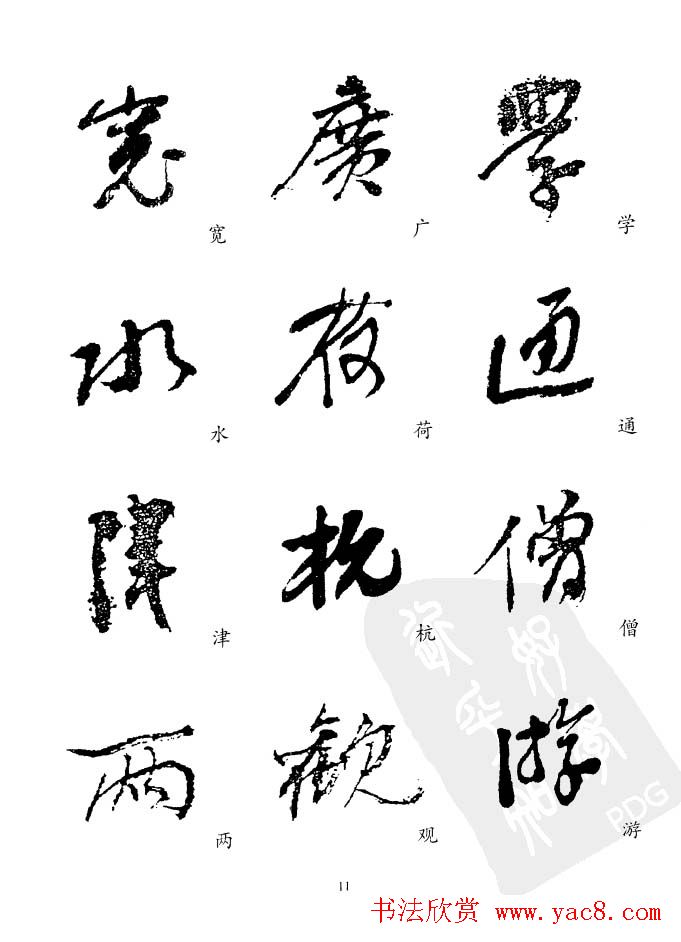 寬 廣 學
宽 广 学
水 荷 通
水 荷 通
津 杭 僧
津 杭 僧
两 觀 游
两 观 游
PDG
11
书法欣赏 www.yac8.com